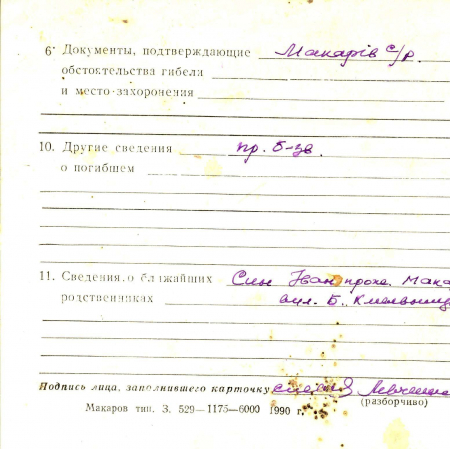 6. Документы, подтверждающие Макарів с/р.
обстоятельства гибели
и место захоронения
10. Другие сведения пр. б-зв.
о погибшем
11. Сведения о ближайших Син Іван прожи. Мака
родственниках вул. Б. Хмельниц
Подпись лица, заполнившего карточку
(разборчиво)
Макаров тип. З. 529—1175—6000 1990 г.